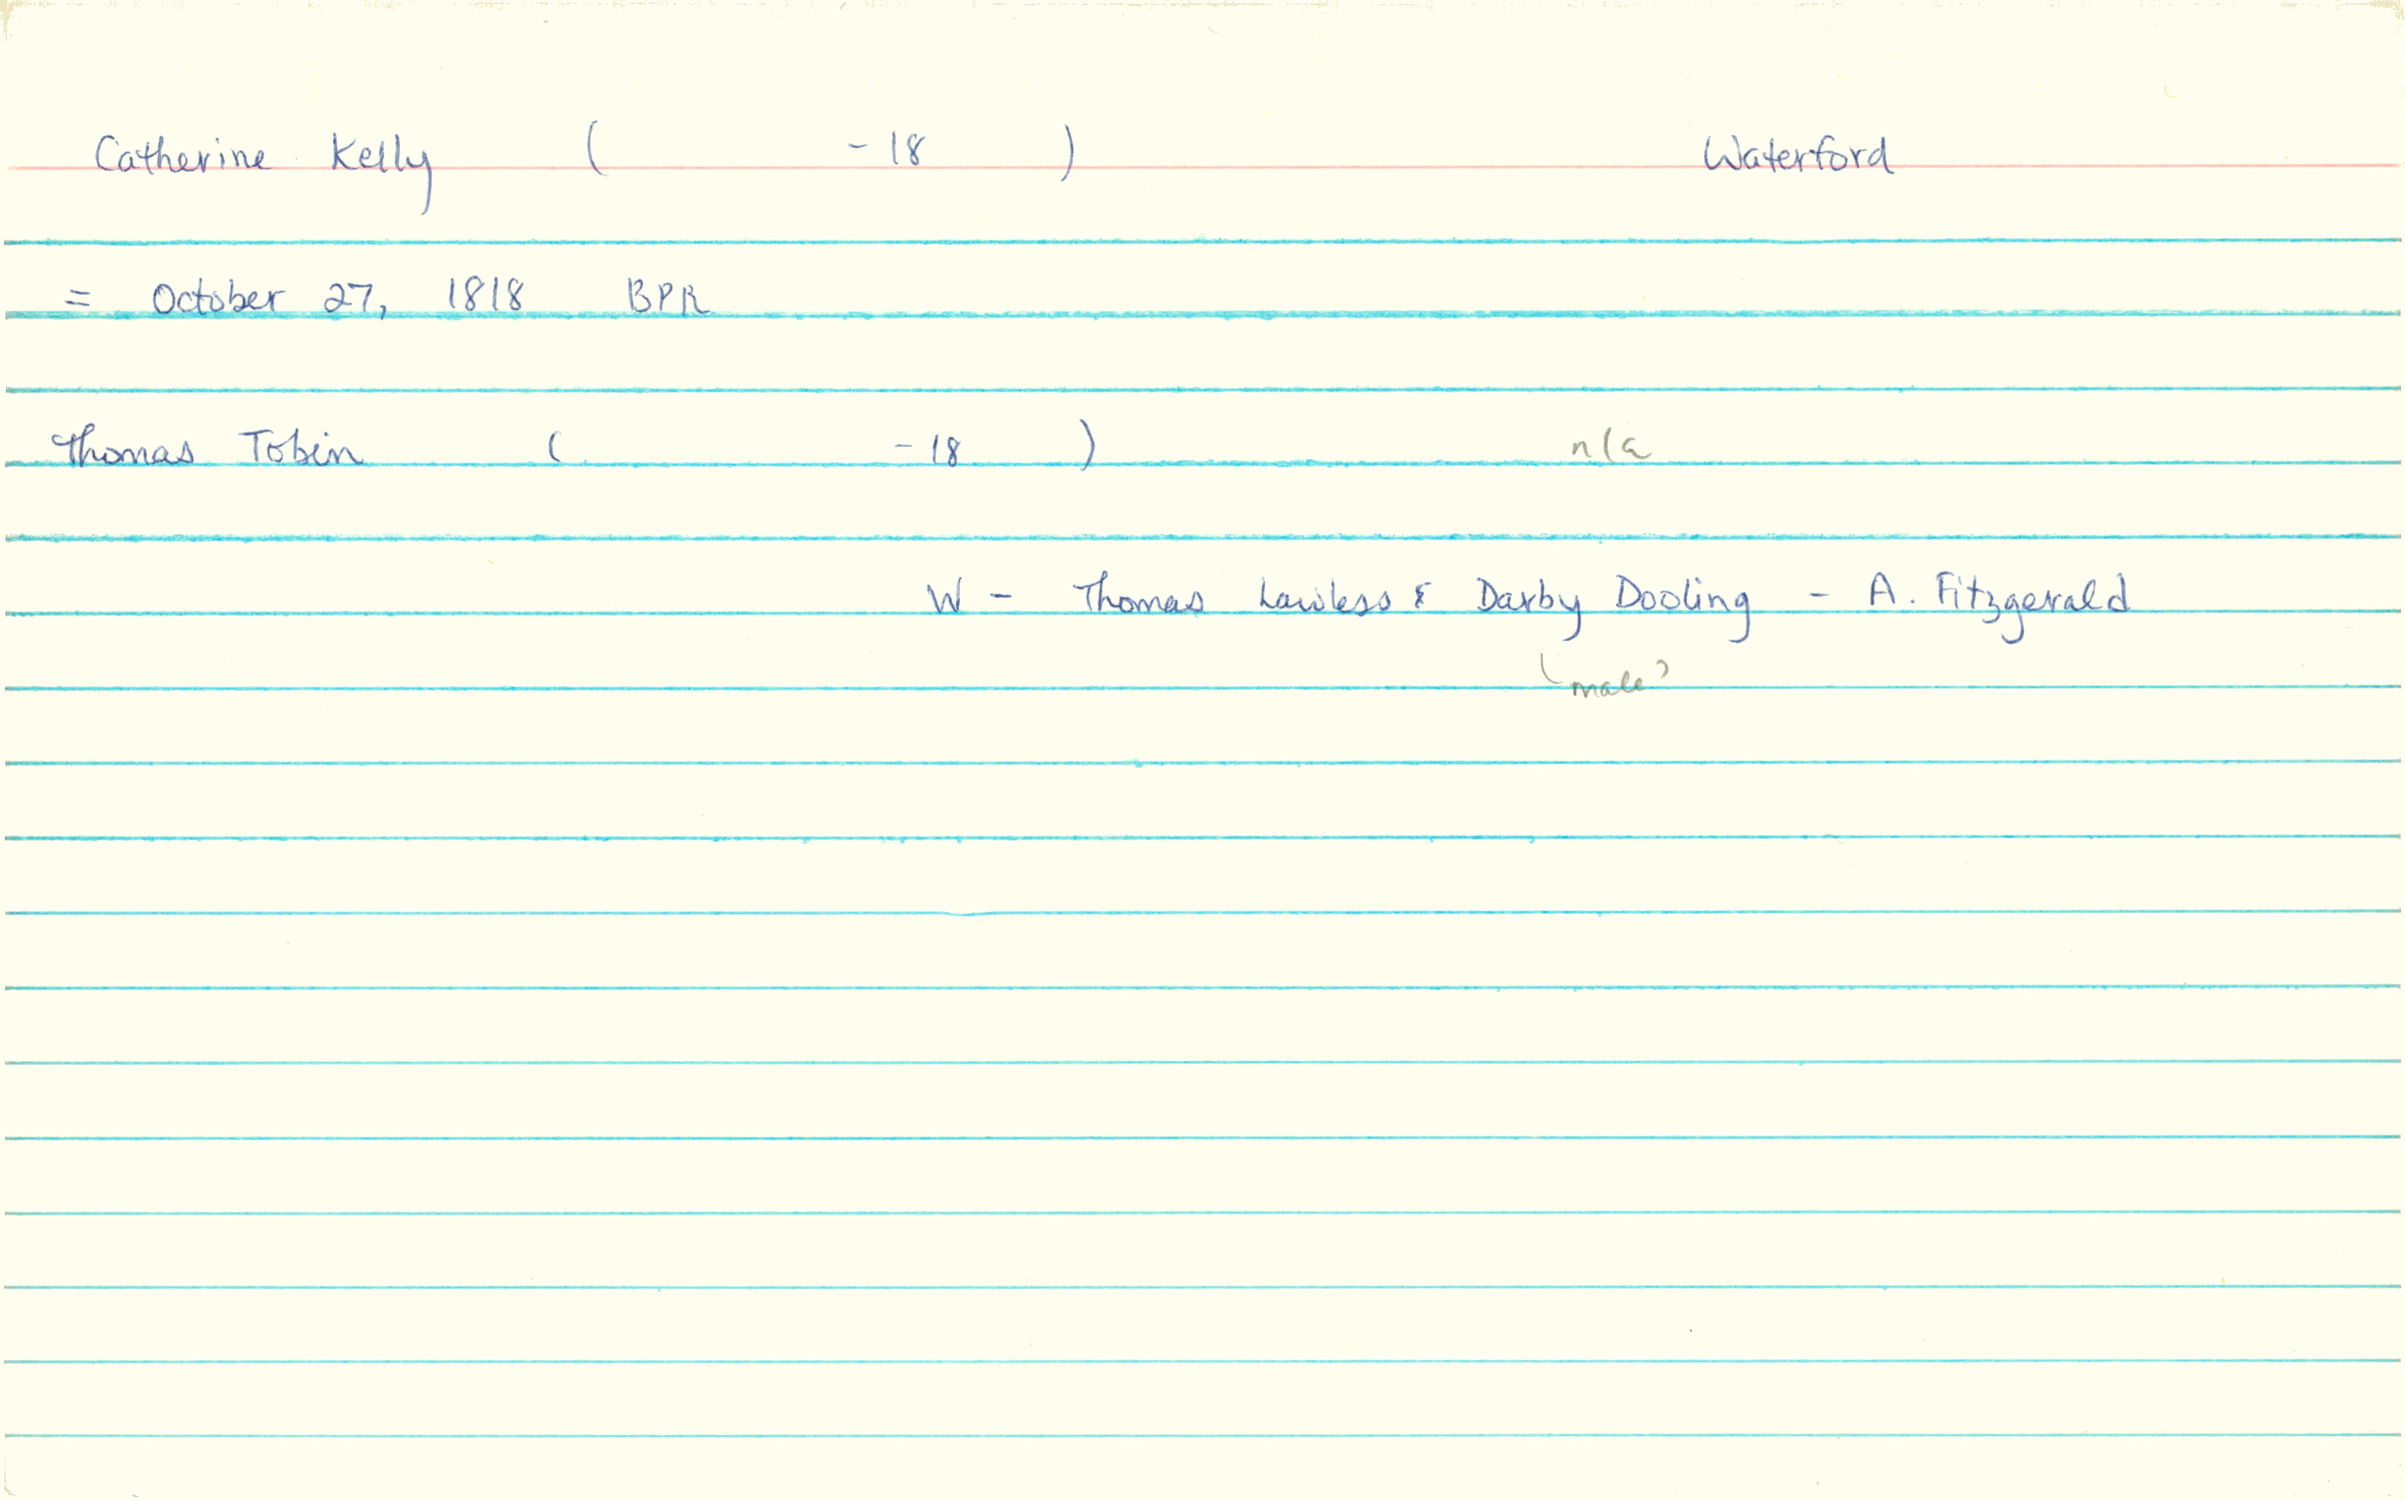 Catherine Kelly ( -18 ) Waterford
= October 27, 1818 BPR
Thomas Tobin ( -18 ) n/a
W - Thomas Lawless & Darby Dooling - A. Fitzgerald
(male)